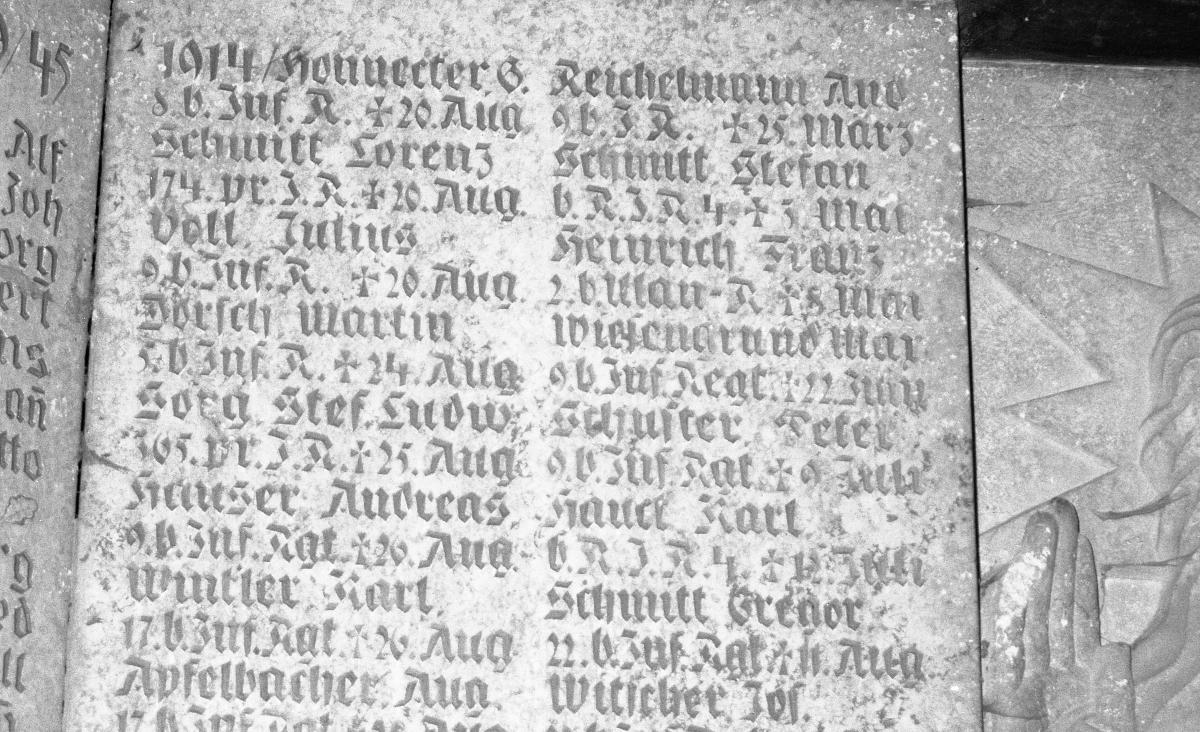 9/45
Alf
Joh
org
ert
ns
añ
tto
g
ed
ll
1914/Honnecker G.
8.b.Inf.R. +20.Aug
Schmitt Lorenz
174.pr.I.R.+20.Aug.
Voll Julius
9.b.Inf.R. +20.Aug.
Dörsch Martin
5.b.Inf.R.+24.Aug
Sorg Stef.Ludw
165.pr.I.R.+25.Aug
Hauser Andreas
9.b.Inf.Rgt.+26.Aug.
Winkler Karl
17.b.Inf.Rgt.+26.Aug
Apfelbacher Aug.
Reichelmann And
9.b.I.R. +25.März
Schmitt Stefan
b.R.I.R.4.+3.Mai
Heinrich Franz
2.b.Ulan-R.+8.Mai
Wiesengrund Mar
9.b.Inf.Regt.+22.Juni
Schuster Peter
9.b.Inf.Rgt.+9.Juli
Hauck Karl
b.R.I.R.4.+12.Juli
Schmitt Gregor
22.b.Inf.Rgt.+11.Aug
Witscher Jos.